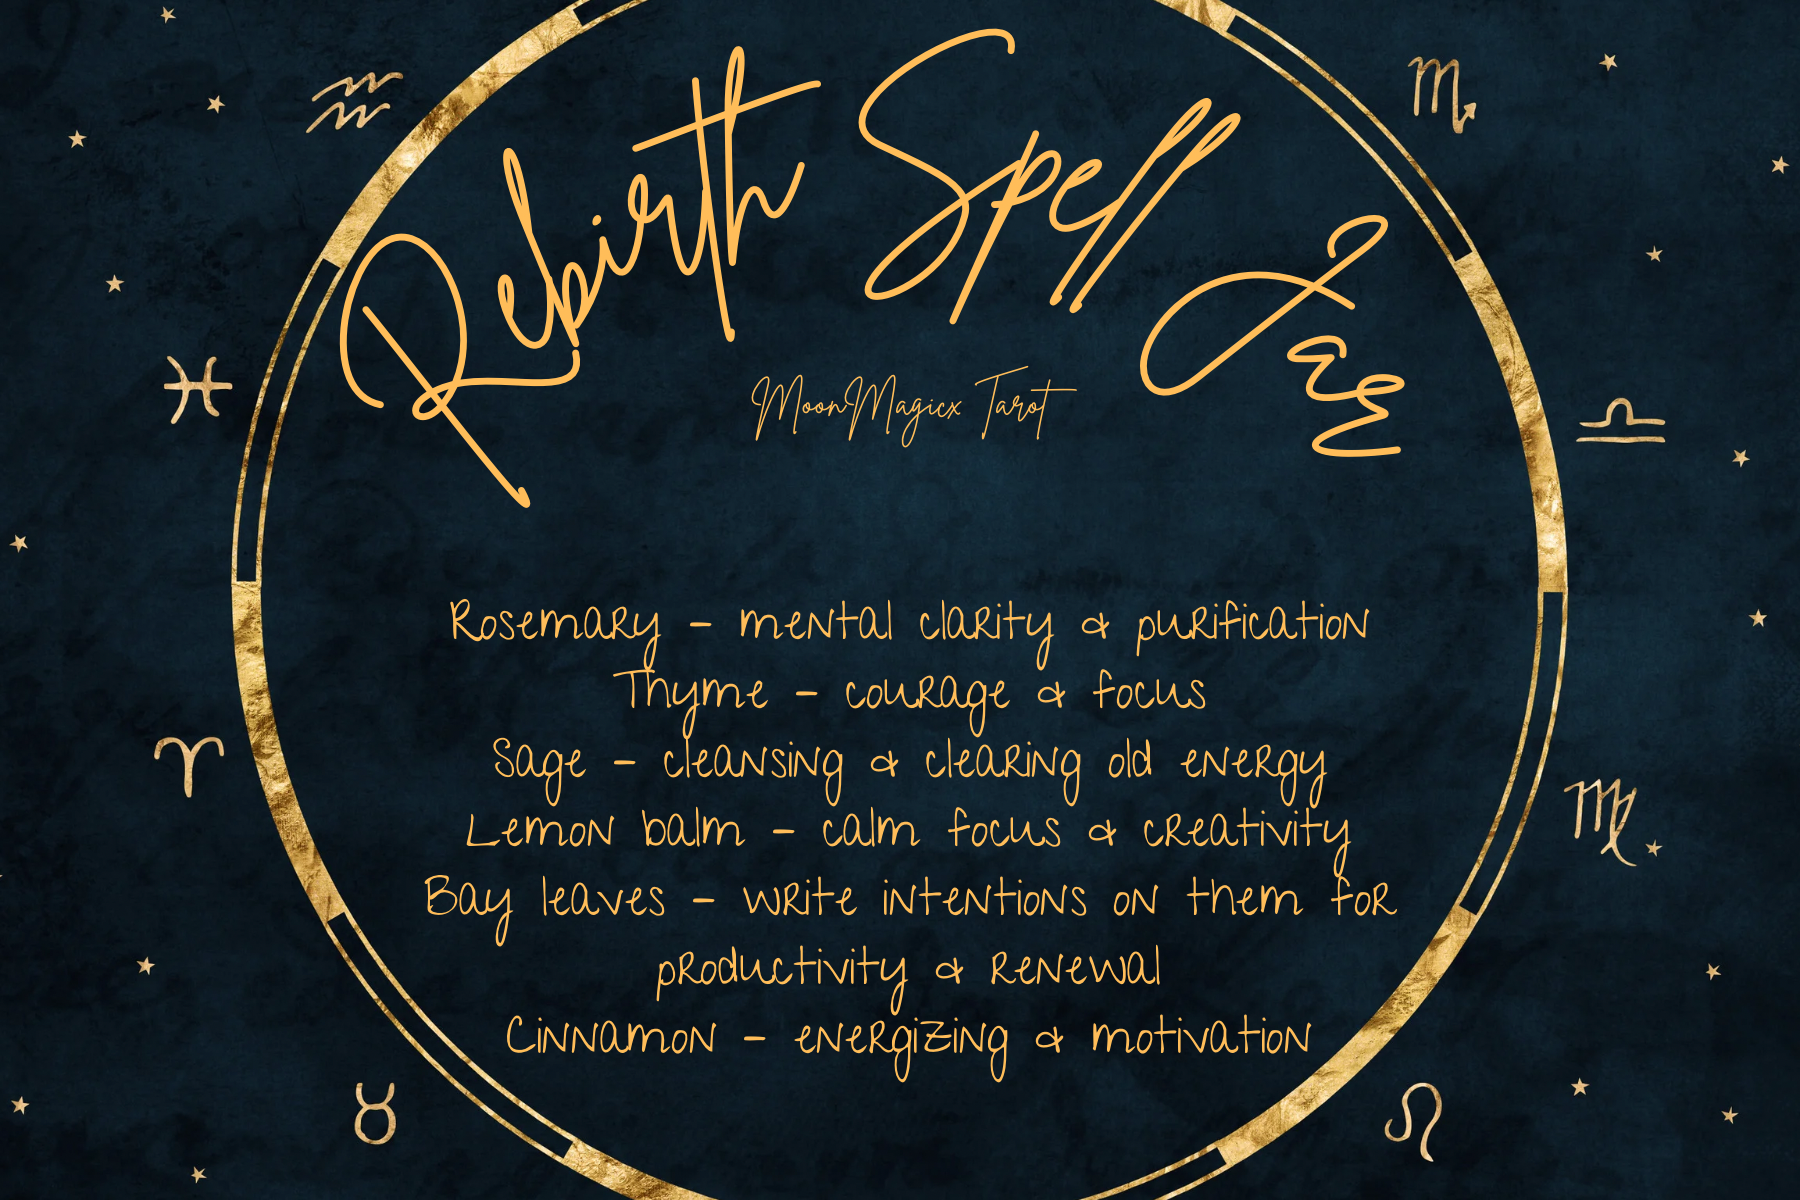 Rebirth Spell Jar
MoonMagicx Tarot
Rosemary - mental clarity & purification
Thyme - courage & focus
Sage - cleansing & clearing old energy
Lemon balm - calm focus & creativity
Bay leaves - write intentions on them for
productivity & renewal
Cinnamon - energizing & motivation